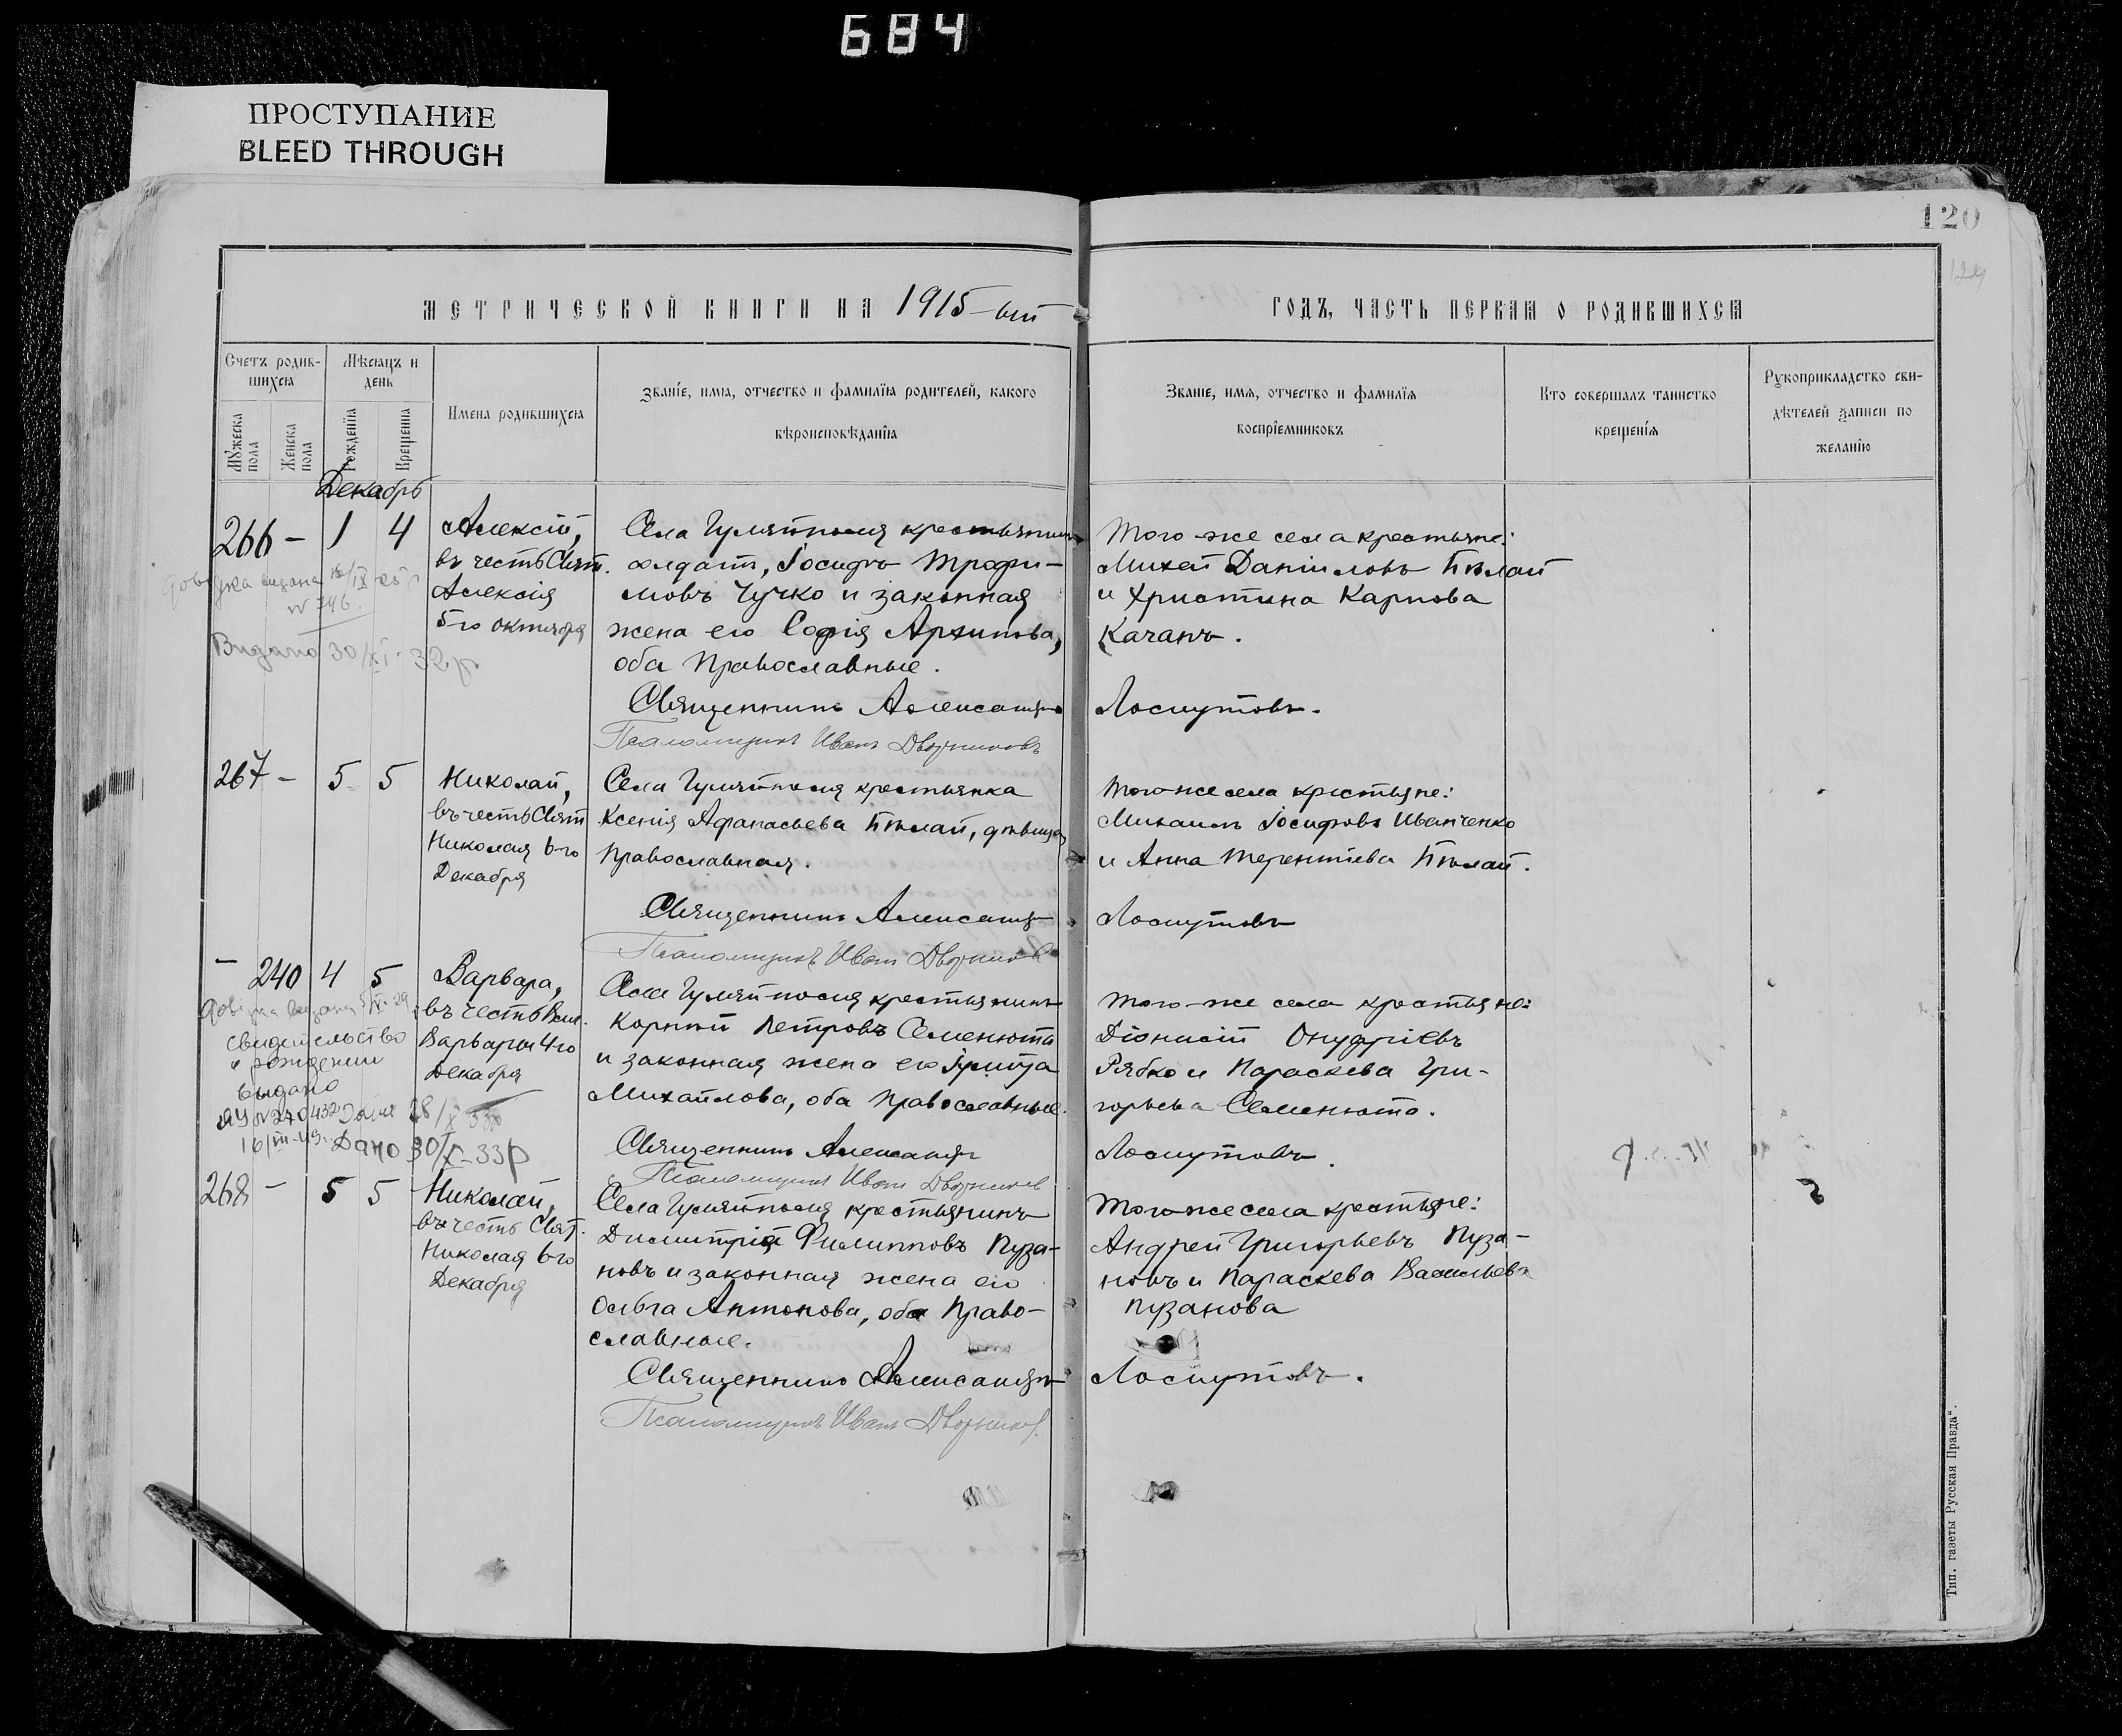 684
ПРОСТУПАНИЕ
BLEED THROUGH
120
МЕТРИЧЕСКОЙ КНИГИ НА 1915-ый
ГОДЪ, ЧАСТЬ ПЕРВАЯ О РОДИВШИХСЯ
Счетъ родив-
шихся
Мѣсяцъ и
день
Мужеска
пола
Женска
пола
Рожденія
Крещенія
Имена родившихся
Званіе, имя, отчество и фамилія родителей, какого
вѣроисповѣданія
Званіе, имя, отчество и фамилія
воспріемниковъ
Кто совершалъ таинство
крещенія
Рукоприкладство сви-
дѣтелей записи по
желанію
Декабрь
266 - 1 4
Алексій,
въ честь Свят.
Алексія
5-го октября
Села Гуляйполя крестьянинъ
солдатъ, Іосифъ Трофи-
мовъ Чучко и законная
жена его Софія Архипова,
оба Православные.
Того-же села крестьяне:
Михей Даніиловъ Бѣлай
и Христина Карпова
Качанъ.
Видано 30/XI-32р
Священникъ Александръ Лоскутовъ.
Псаломщикъ Иванъ Дворниковъ
267 - 5 5
Николай,
въ честь Свят
Николая 6-го
Декабря
Села Гуляйполя крестьянка
Ксенія Афанасьева Бѣлай, дѣвица
Православная.
Того-же села крестьяне:
Михаилъ Іосифовъ Иванченко
и Анна Терентіева Бѣлай.
Священникъ Александръ Лоскутовъ
Псаломщикъ Иванъ Дворниковъ
- 240 4 5
Варвара,
въ честь Вел.
Варвары 4-го
Декабря
Села Гуляйполя крестьянинъ
Корній Петровъ Семенюта
и законная жена его
Михайлова, оба Православные.
Того-же села крестьяне:
Діонисій Онуфріевъ
Рябко и Параскева Гри-
горьева Семенюта.
свидетельство
о рождении
выдано
Дано 30/X-33р
Священникъ Александръ Лоскутовъ.
Псаломщикъ Иванъ Дворниковъ
268 - 5 5
Николай,
въ честь Свят.
Николая 6-го
Декабря
Села Гуляйполя крестьянинъ
Димитрій Филипповъ Пуза-
новъ и законная жена его
Ольга Антонова, оба Право-
славные.
Того-же села крестьяне:
Андрей Григорьевъ Пуза-
новъ и Параскева Васильева
Пузанова
Священникъ Александръ Лоскутовъ.
Псаломщикъ Иванъ Дворниковъ.
Тип. газеты Русская Правда".